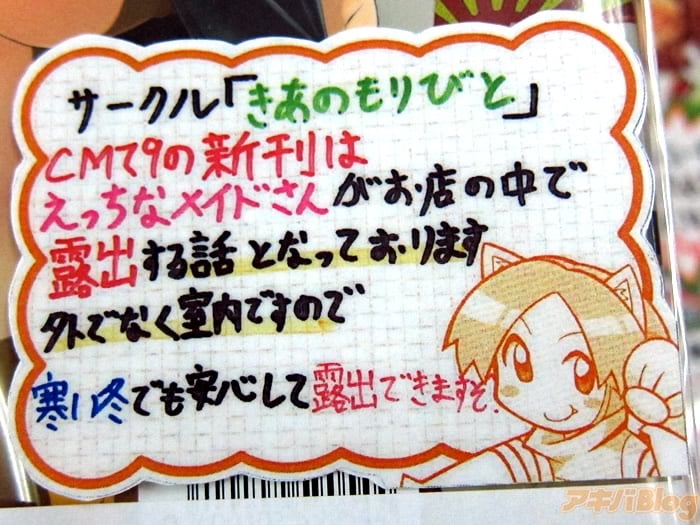 サークル「きあのもりびと」
CM79の新刊は
えっちなメイドさんがお店の中で
露出する話となっております
外でなく室内ですので
寒い冬でも安心して露出できますぞ!
アキバBlog